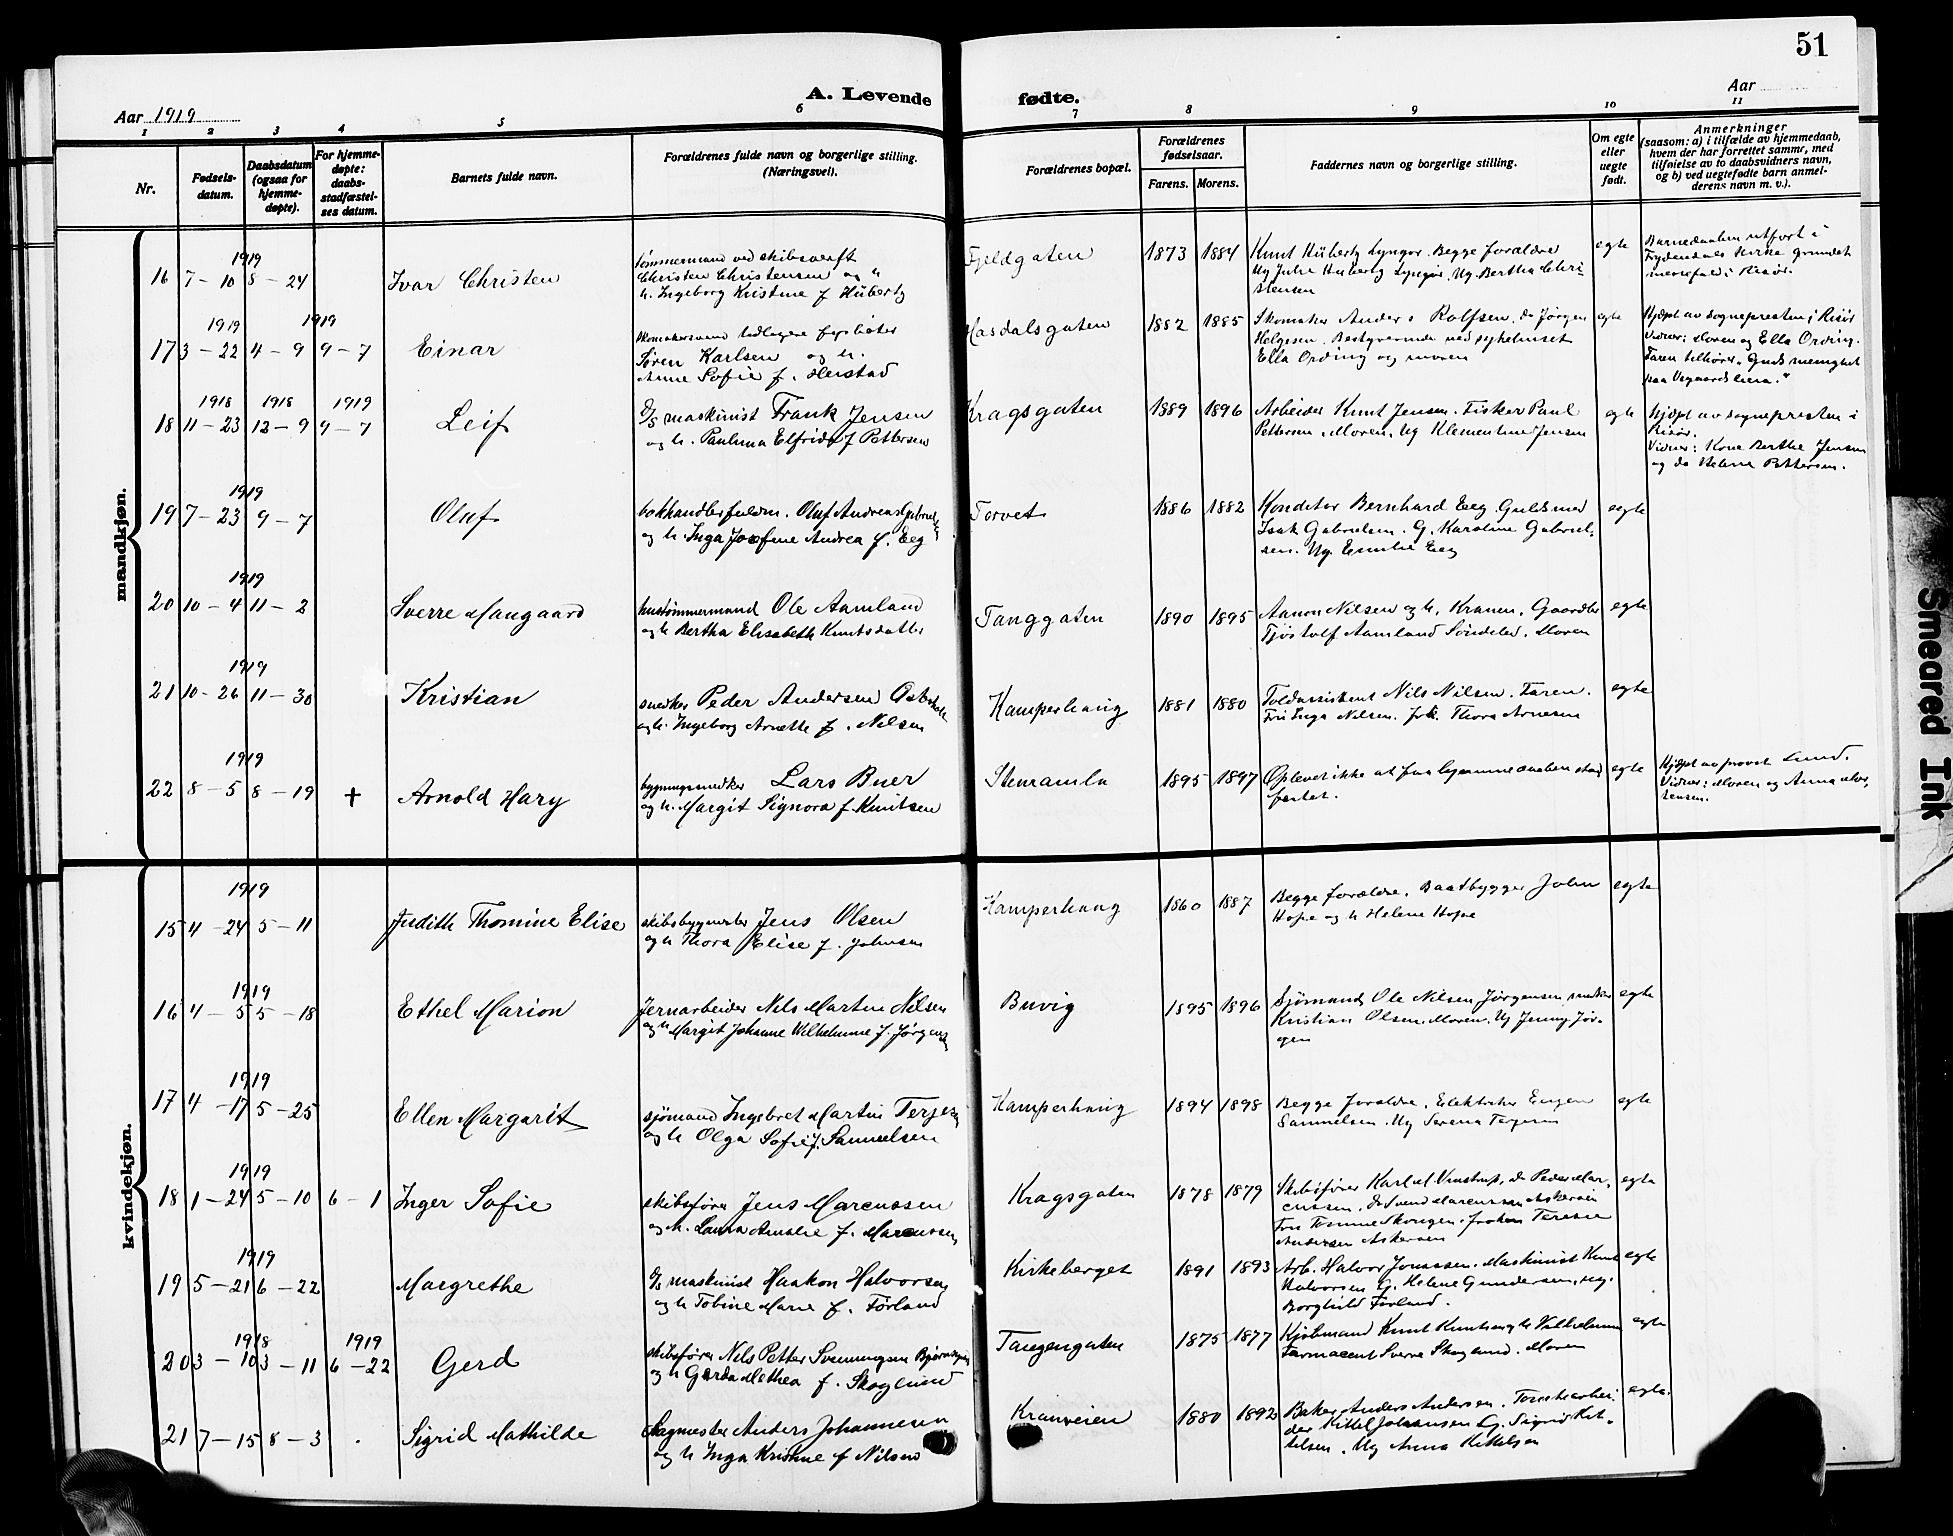 51
A. Levende fødte.
Aar 1919
Aar
1 2 3 4 5 6 7 8 9 10 11
Nr.
Fødsels-
datum.
Daabsdatum
(ogsaa for
hjemme-
døpte).
For hjemme-
døpte:
daabs-
stadfæstel-
ses datum.
Barnets fulde navn.
Forældrenes fulde navn og borgerlige stilling.
(Næringsvei).
Forældrenes bopæl.
Forældrenes
fødselsaar.
Farens. Morens.
Faddernes navn og borgerlige stilling.
Om egte
eller
uegte
født.
Anmerkninger
(saasom: a) i tilfælde av hjemmedaab,
hvem der har forrettet samme, med
tilføielse av to daabsvidners navn,
og b) ved uegtefødte barn anmel-
derens navn m. v.).
mandkjøn.
1919
16 7-10 8-24 Ivar Christen
Tømmermand ved skibsverft
Christen Christensen og
h. Ingeborg Kristine f Huberty
Fjeldgaten 1873 1884
Knut Huberty Lyngør. Begge forældre
Ug Julie Huberty Lyngør. Ug. Bertha Chri-
stensen
egte
Barnedaaben utført i
Frydendals kirke grundet
i Risør.
1919 1919
17 3-22 4-9 9-7 Einar
Søren Karlsen og h.
Anne Sofie f. Heistad
Hasdalsgaten 1882 1885
Skomaker Anders Rolfsen, do Jørgen
Helgesen. Bestyrerinde ved sykehuset
Ella Ording og moren
egte
Hjdøpt av sognepresten i Risør
Vidner: Moren og Ella Ording.
Faren tilhører "Guds menighet
paa Vegaardsheia."
1918 1918 1919
18 11-23 12-9 9-7 Leif
D/S maskinist Frank Jensen
og h. Paulina Elfrida f Pettersen
Kragsgaten 1889 1896
Arbeider Knut Jensen. Fisker Paul
Pettersen. Moren. Ug Klementine Jensen
egte
Hjdøpt av sognepresten i
Risør.
Vidner: Kone Berthe Jensen
og do Helene Pettersen.
1919
19 7-23 9-7 Oluf
bokhandlerfuldm. Oluf Andreas Gabrielsen
og h. Inga Josefine Andrea f. Eeg
Torvet 1886 1882
Konditor Bernhard Eeg. Guldsmed
Isak Gabrielsen. G. Karoline Gabriel-
sen. Ug. Emilie Eeg
egte
1919
20 10-4 11-2 Sverre Maugaard
hustømmermand Ole Aamland
og h Bertha Elisabeth Knutsdatter
Tanggaten 1890 1895
Aanon Nilsen og h. Kranen. Gaardbr
Tjøstolf Aamland Søndeled. Moren
egte
1919
21 10-26 11-30 Kristian
snedker Peder Andersen
og h. Ingeborg Arnette f. Nilsen
Kamperhaug 1881 1880
Toldassistent Nils Nilsen. Faren.
Fru Inga Nilsen. frk. Thora Arnesen
egte
1919
22 8-5 8-19 + Arnold Hary
bygningssnedker Lars Buer
og h. Margit Signora f. Knutsen
Stenramla 1895 1897
Oplevet ikke at faa hjemmedaaben stad
fæstet.
egte
Hjdøpt av provst Lund.
Vidner: Moren og Anna Mor-
tensen.
kvindekjøn.
1919
15 4-24 5-11 Judith Thomine Elise
skibsbygmester Jens Olsen
og h Thora Elise f. Johnsen
Kamperhaug 1860 1887
Begge forældre. Baatbygger John
Hope og h Helene Hope
egte
1919
16 4-5 5-18 Ethel Marion
Jernarbeider Nils Martin Nilsen
og h Margit Johanne Wilhelmine f. Jørgensen
Buvig 1895 1896
Sjømand Ole Nilsen Jørgensen, snedker
Kristian Olsen. Moren. Ug Jenny Jør-
gen
egte
1919
17 4-17 5-25 Ellen Margarit
sjømand Ingebret Martin Terjesen
og h Olga Sofie f. Samuelsen
Kamperhaug 1894 1898
Begge forældre. Elektriker Eugen
Samuelsen. Ug Serena Terjesen
egte
1919
18 1-24 5-10 6-1 Inger Sofie
skibsfører Jens Marcussen
og h. Laura Amalie f. Marcussen
Kragsgaten 1878 1879
Skibsfører Karl M. do Peder Mar-
cussen. do Svend Marcussen Askerøen
Fru Tomine Skougen. froken Teresie
Andersen Askerøen
egte
1919
19 5-21 6-22 Margrethe
D/S maskinist Haakon Halvorsen
og h Tobine Marie f. Førland
Kirkeberget 1891 1893
Arb. Halvor Jonassen. Maskinist Knut
Halvorsen G. Helene Gundersen, ug.
Borghild Førland.
egte
1918 1919
20 3-10 3-11 6-22 Gerd
skibsfører Nils Petter Svenningsen
og h Gerda Mathea f. Skoglund
Tangengaten 1875 1877
Kjøbmand Knut Knutsen og h Vilhelmine
Farmaceut Sverre Skoglund. Moren
egte
21 7-15 8-3 Sigrid Mathilde
Sagmester Anders Johannesen
og h Inga Kristine f Nilsen
Kranveien 1880 1892
Baker Anders Andersen. Tomtearbei-
der Kittel Johansen G. Sigrid Kit-
telsen. Ug Anna Kittelsen
egte
Smeared Ink